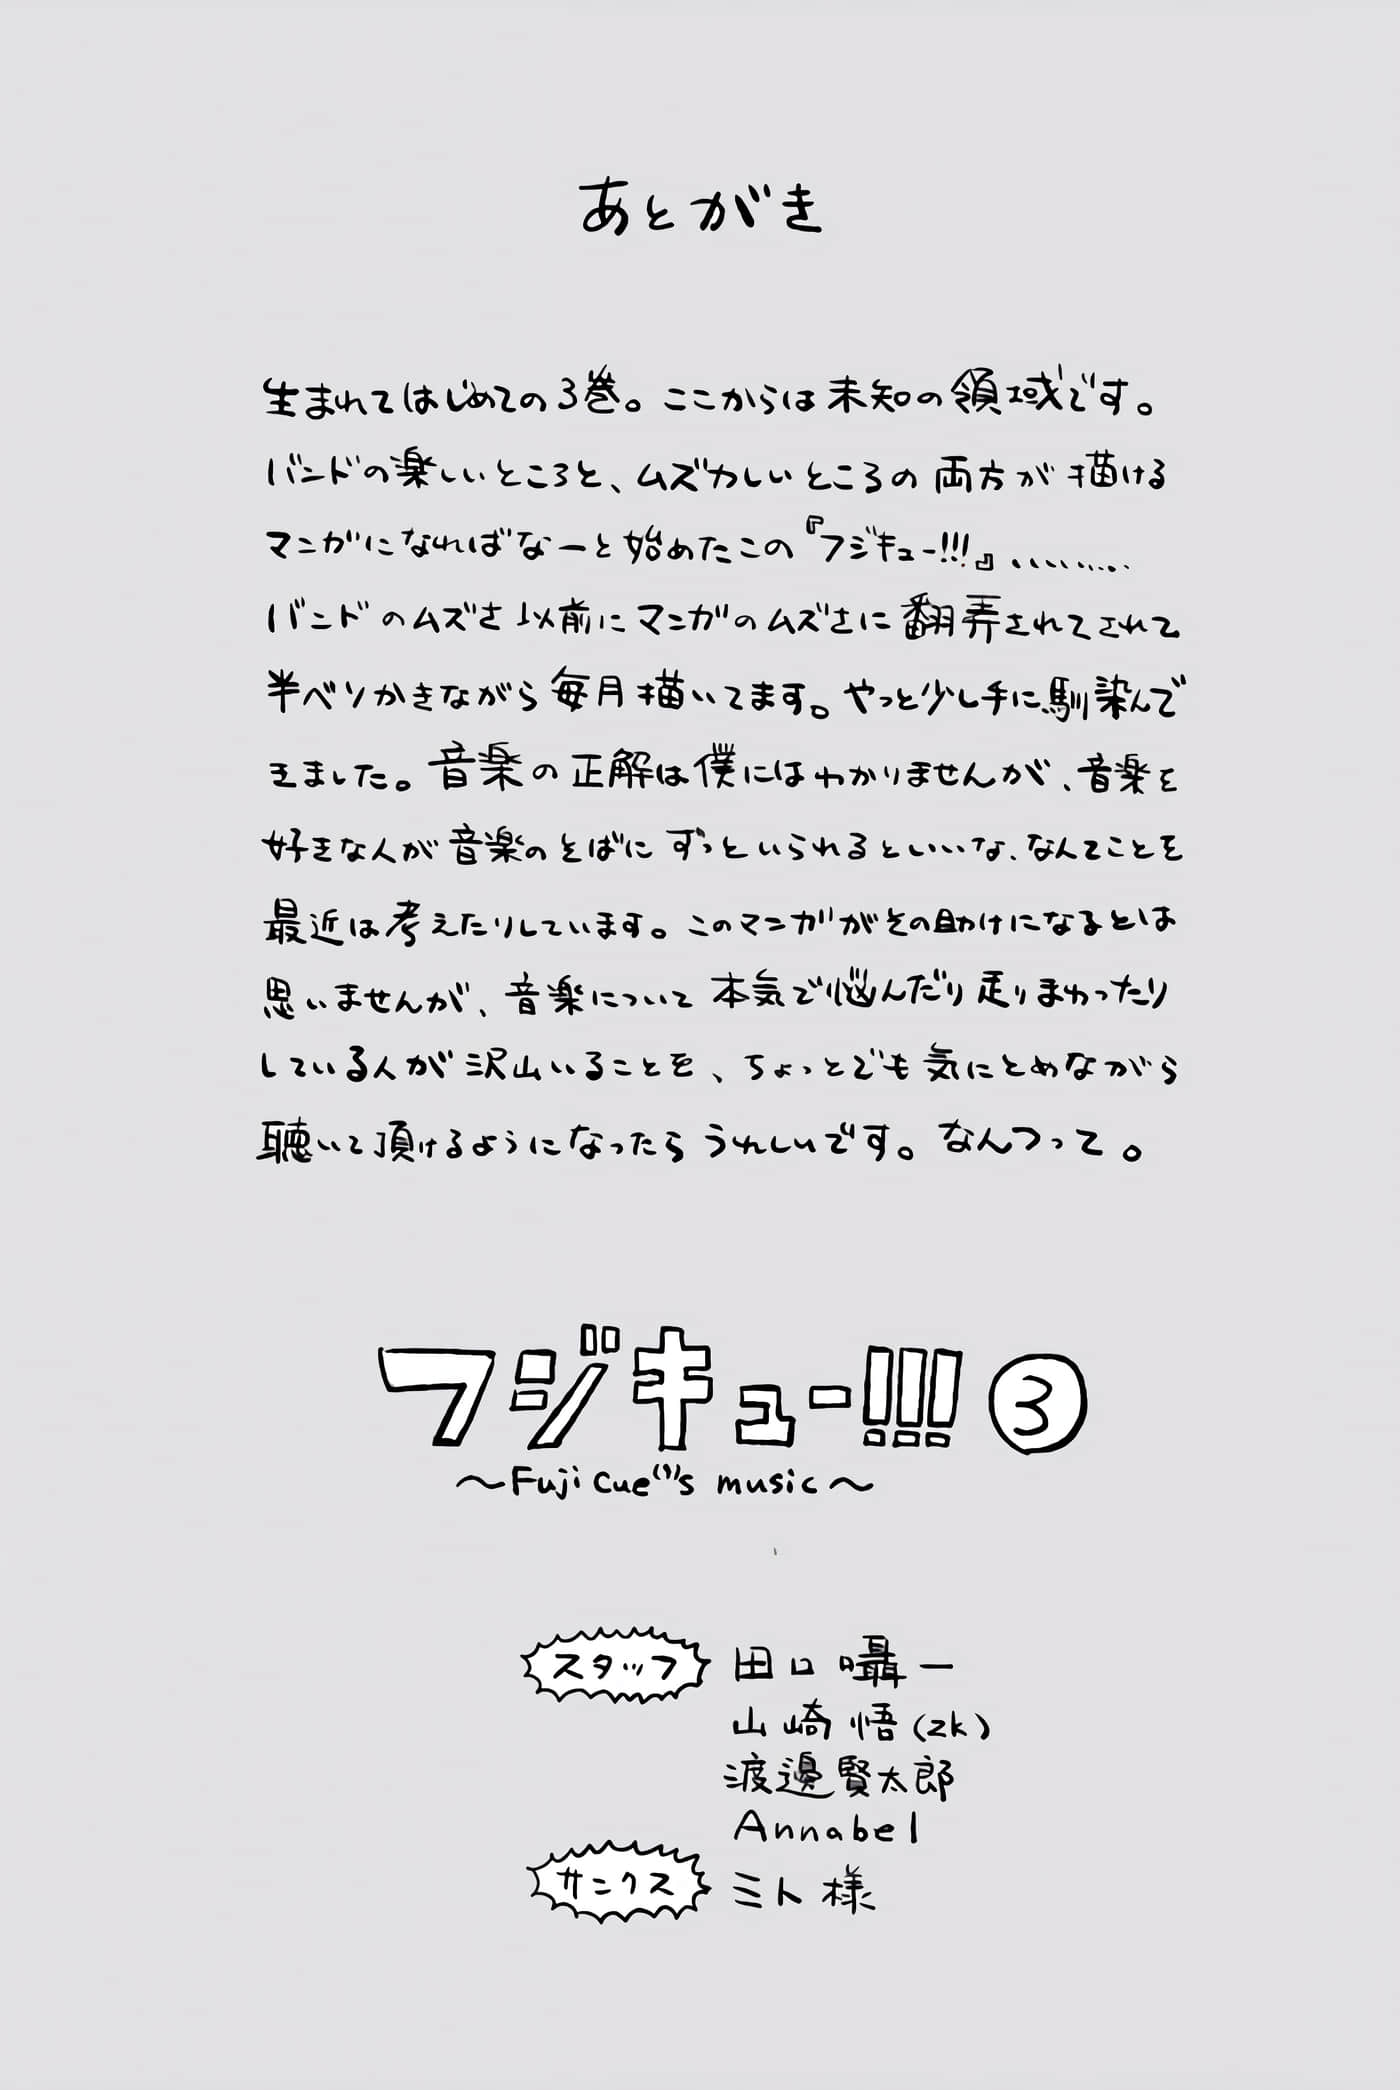 あとがき
生まれてはじめての3巻。ここからは未知の領域です。
バンドの楽しいところと、ムズカしいところの両方が描ける
マンガになればなーと始めたこの『フジキュー!!!』、、、、、、、、、
バンドのムズさ以前にマンガのムズさに翻弄されてされて
半ベソかきながら毎月描いてます。やっと少し手に馴染んで
きました。音楽の正解は僕にはわかりませんが、音楽を
好きな人が音楽のそばにずっといられるといいな、なんてことを
最近は考えたりしています。このマンガがその助けになるとは
思いませんが、音楽について本気で悩んだり走りまわったり
している人が沢山いることを、ちょっとでも気にとめながら
聴いて頂けるようになったらうれしいです。なんつって。
フジキュー!!! ③
〜Fuji cue'''s music〜
スタッフ 田口囁一
山崎悟(zk)
渡邊賢太郎
Annabel
サンクス ミト様